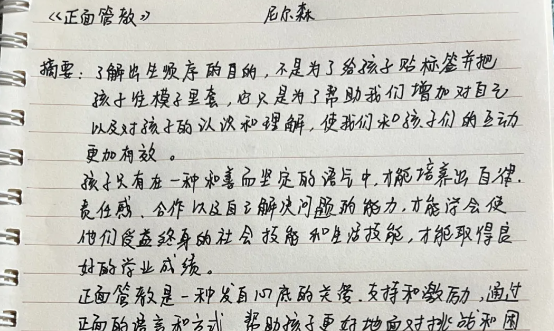 《正面管教》 尼尔森
摘要：了解出生顺序的目的，不是为了给孩子贴标签并把
孩子往模子里套，它只是为了帮助我们增加对自己
以及对孩子的认识和理解，使我们和孩子们的互动
更加有效。
孩子只有在一种和善而坚定的语气中，才能培养出自律、
责任感、合作以及自己解决问题的能力，才能学会使
他们受益终身的社会技能和生活技能，才能取得良
好的学业成绩。
正面管教是一种发自心底的关爱、支持和激励，通过
正面的语言和方式，帮助孩子更好地面对挑战和困